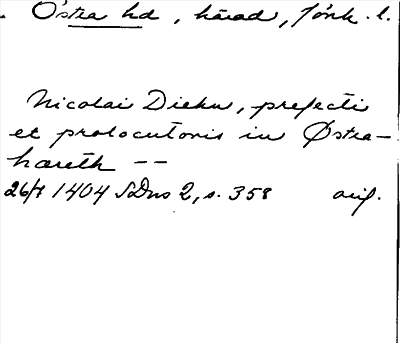 Östra hd, härad, Jönk. l.
Nicolai Diekn, prefecti
et prolocutoris in Østra-
hæreth --
26/7 1404 SDns 2, s. 358 orig.